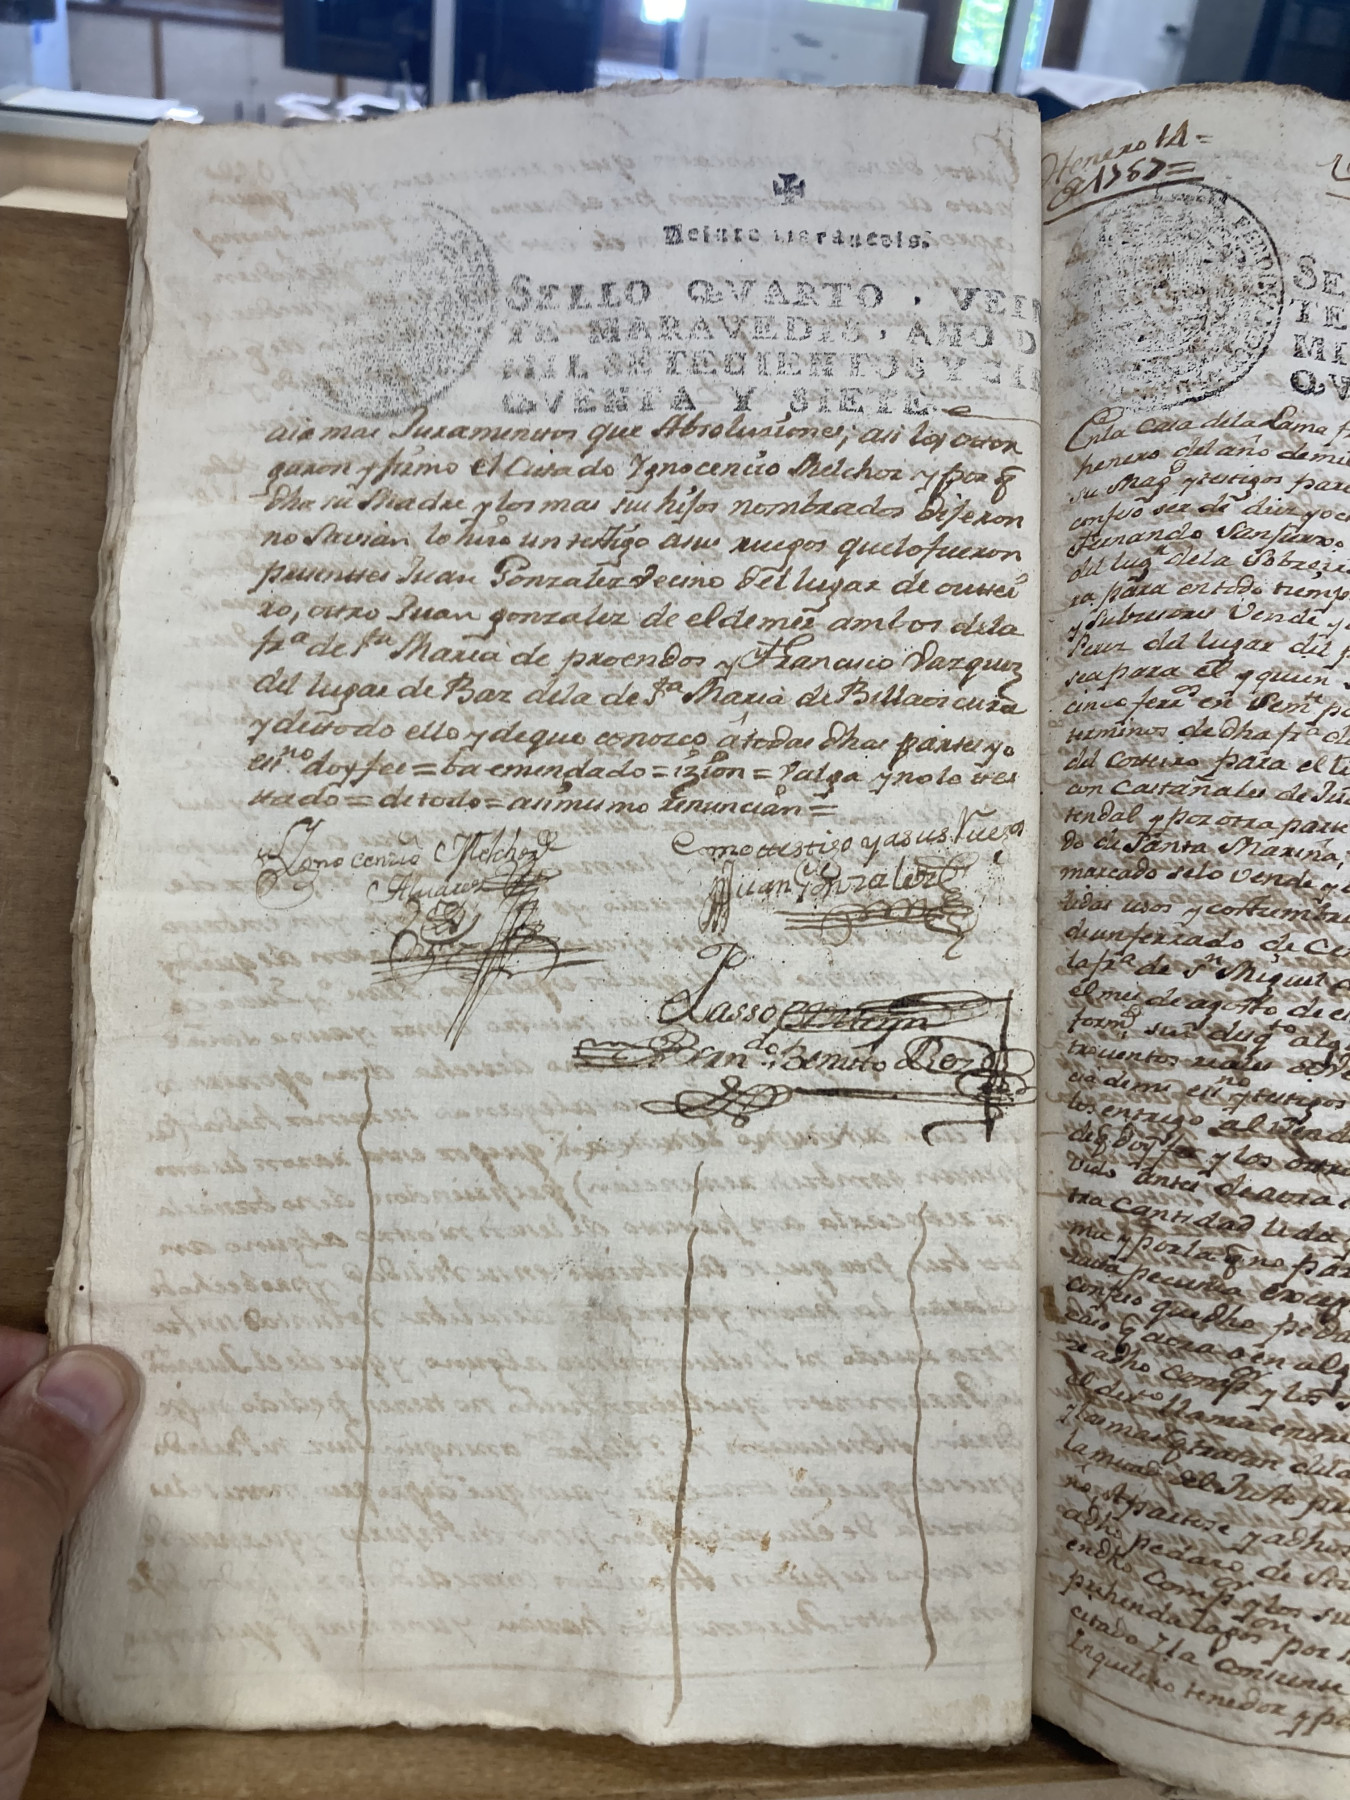 Veinte maravedis.
SELLO QVARTO, VEIN
TE MARAVEDIS, AÑO D
MIL SETECIENTOS Y CIN
QVENTA Y SIETE
aia mas Juramentos que Absoluziones; asi los otor
garon y firmo el Citado Ygnocencio Melchor y por q̃
dha su Madre y los mas sus hijos nombrados dijeron
no Savian lo hizo un testigo a sus ruegos que lo fueron
presentes Juan Gonzalez Vecino del lugar de outei
ro, otro Juan gonzalez de el de mei ambos dela
fr.ª de S.ta Maria de proendos y Francisco Vazquez
del lugar de Baz dela de S.ta Maria de Billaoscura
y de todo ello y de que conozco á todas dhas partes yo
es.no doy fee = ba emendado = izion = Valga y no lo tes
tado = de todo = asimismo renuncian =
Ygnocencio Melchor
Alvarez
Como testigo y a sus Ruegos
Juan Gonzalez
Passo
Fran.do Benito
Henero 14 =
de 1757 =
SE
TE
MI
QV
En la Casa dela Lama f
henero del año de mil
su Mag.d y testigos pare
confesó ser de diez y och
Fernando Sanfurxo
del lug.r dela Pobre
ra para en todo tiemp
y Subzesores Vende y
Perez del lugar del
sea para el y quien
cinco ferr.os en Sem.te
terminos de dha fr.ª d
del Corteiro para el
con Castañales de Ju
tendal y por otra parte
do de Santa Marina,
marcado selo Vende y
tidas usos y costumbre
de un ferrado de Ce
la fr.ª de S.n Miguel
el mes de agosto de c
form.d sus deq.to alg
trecientos reales de Ve
cia de mi es.no y testigos
los entrego al Vende
de q̃ Doy fee y los otro
vido antes de aora
tra Cantidad le da
ma y por la q̃ no par
rada pecunia excep
confeso que dho peda
caso q̃ aora o en alg
ze a dho Comp.or y los
el duro llama entre
y llamas q̃ tratan dela
la mitad del Justo pr
no, Apartose y adhos
adho pedazo de Sot
endho Comp.or y los su
prehenda lagos por
citado y la consiente
Ynquilino tenedor y po